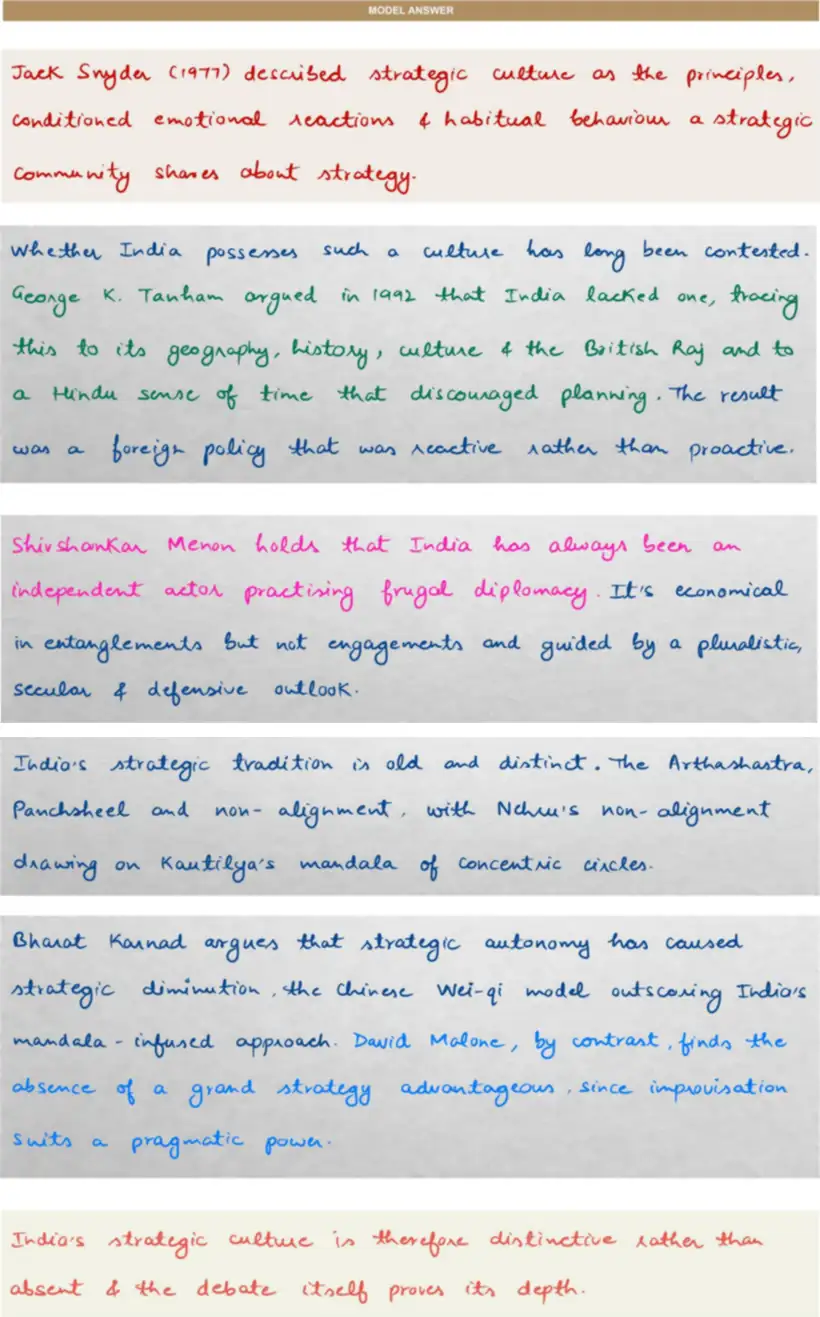 MODEL ANSWER
Jack Snyder (1977) described strategic culture as the principles,
conditioned emotional reactions & habitual behaviour a strategic
community shares about strategy.
Whether India possesses such a culture has long been contested.
George K. Tanham argued in 1992 that India lacked one, tracing
this to its geography, history, culture & the British Raj and to
a Hindu sense of time that discouraged planning. The result
was a foreign policy that was reactive rather than proactive.
Shivshankar Menon holds that India has always been an
independent actor practising frugal diplomacy. It's economical
in entanglements but not engagements and guided by a pluralistic,
secular & defensive outlook.
India's strategic tradition is old and distinct. The Arthashastra,
Panchsheel and non-alignment, with Nehru's non-alignment
drawing on Kautilya's mandala of concentric circles.
Bharat Karnad argues that strategic autonomy has caused
strategic diminution, the Chinese Wei-qi model outscoring India's
mandala-infused approach. David Malone, by contrast, finds the
absence of a grand strategy advantageous, since improvisation
suits a pragmatic power.
India's strategic culture is therefore distinctive rather than
absent & the debate itself proves its depth.